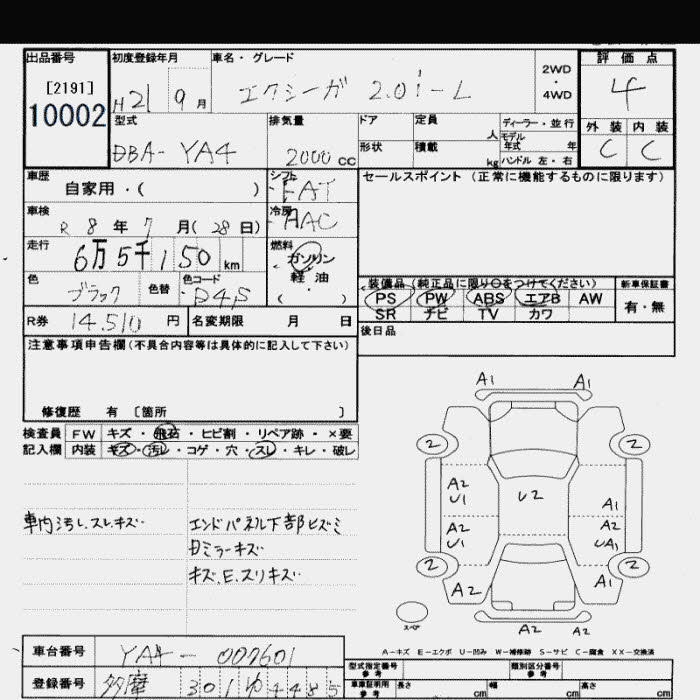 出品番号 初度登録年月 車名・グレード 評価点
[2191] 10002 H21 9月 エクシーガ 2.0i-L 2WD・4WD 4
型式 排気量 ドア 定員 人 ディーラー・並行 外装 内装
DBA-YA4 2000cc 形状 積載 kg モデル年式 年 ハンドル 左・右 C C
車歴 自家用・( ) シフト FAT セールスポイント(正常に機能するものに限ります)
車検 R 8年 7月(28日) 冷房 AAC
走行 6万5千150km 燃料 ガソリン
軽油
( )
色 ブラック 色替 色コード D4S 装備品(純正品に限り○をつけてください) 新車保証書
PS PW ABS エアB AW 有・無
SR ナビ TV カワ
R券 14.510円 名変期限 月 日
後日品
注意事項申告欄(不具合内容等は具体的に記入して下さい)
修復歴 有 [箇所 ]
検査員 FW キズ・飛石・ヒビ割・リペア跡・×要
記入欄 内装 キズ・汚レ・コゲ・穴・スレ・キレ・破レ
車内汚し.スレキズ
エンドパネル下部ヒズミ
日ミラーキズ
キズ.E.スリキズ
A1 A1
2 2
A2 U1 U2 A1
A2 U1 A2 UA1
2 2
A2 A1
A2 A2
スペア
A-キズ E-エクボ U-凹み W-補修跡 S-サビ C-腐食 XX-交換済
車台番号 YA4-007601
型式指定番号 参考 類別区分番号 参考
登録番号 多摩 301 ゆ 4485
車庫証明用 参考 長さ cm 幅 cm 高さ cm